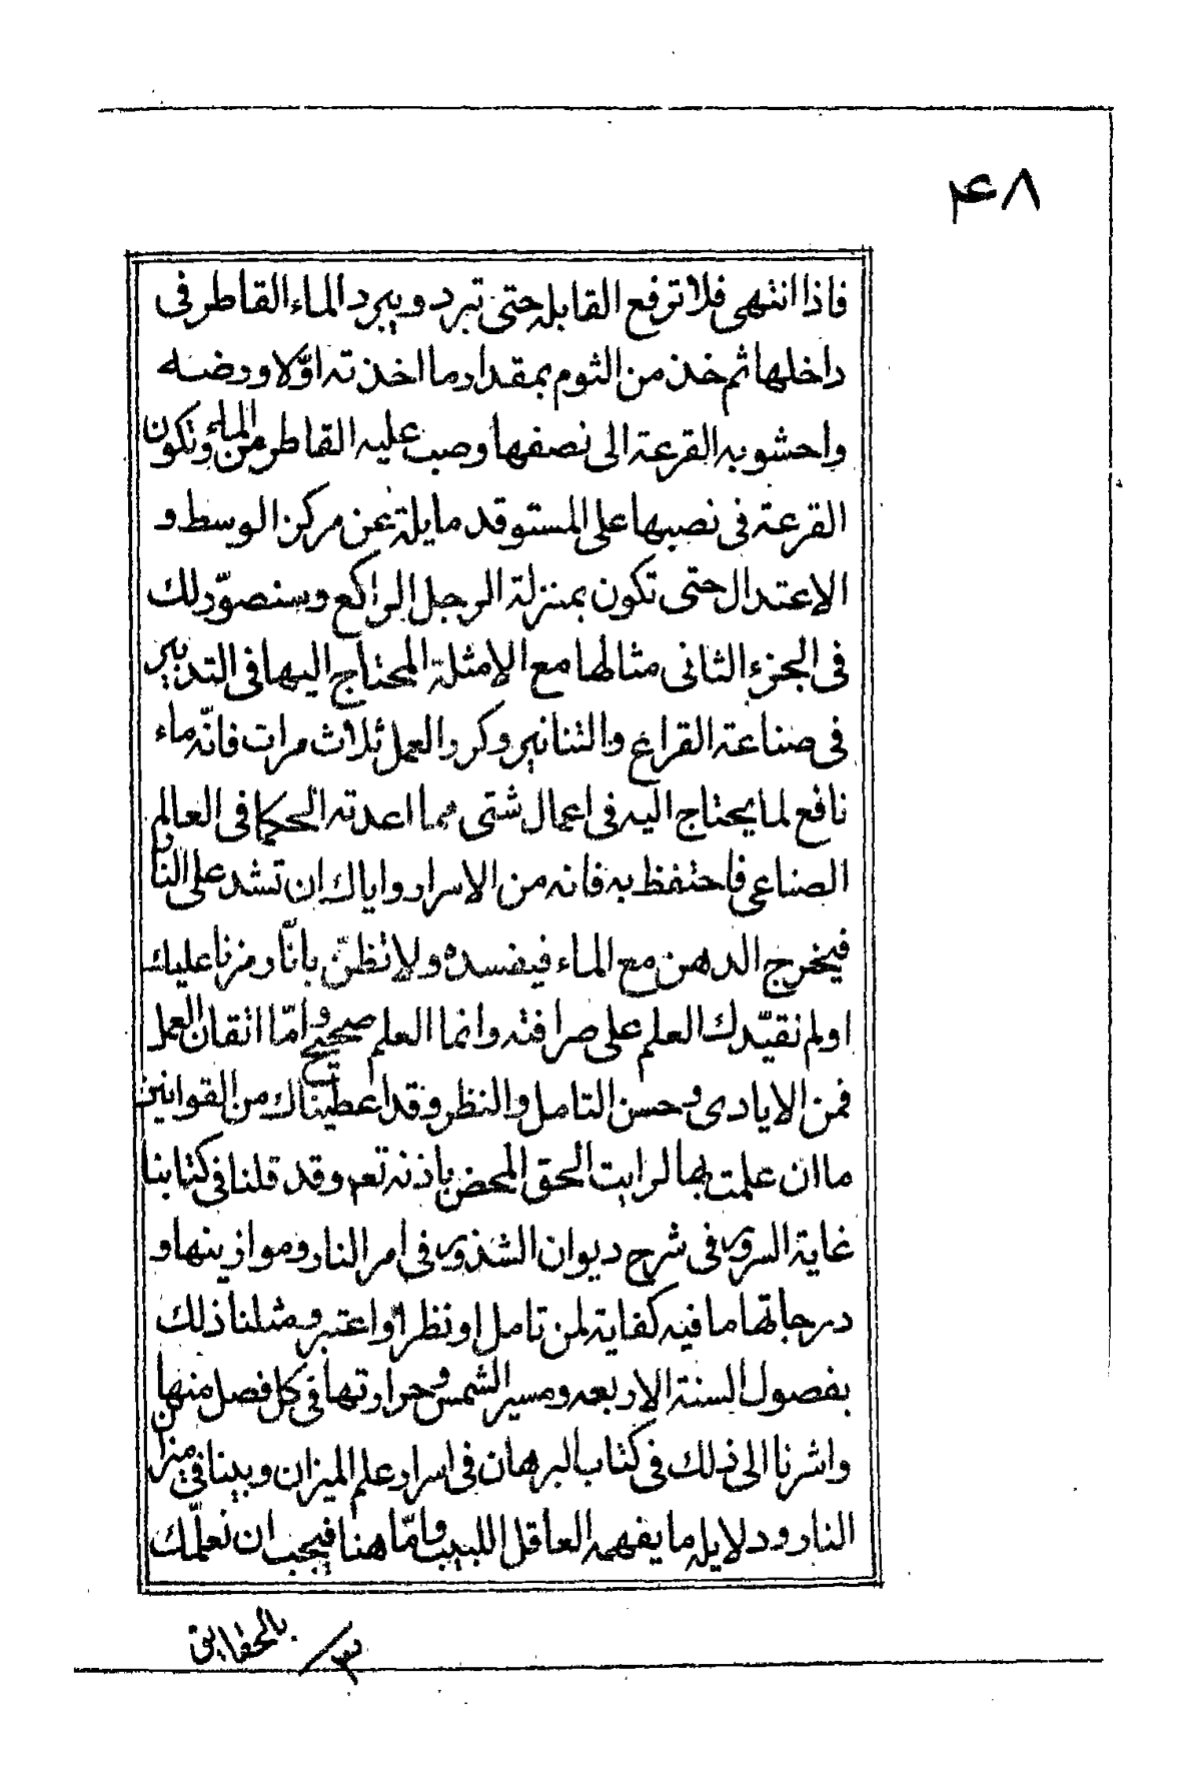 ۴۸
فاذا انتهى فلا ترفع القابله حتى تبرد ويبرد الماء القاطر فى
داخلها ثم خذ من الثوم بمقدار ما اخذته اوّلا ورضه
واحشو به القرعة الى نصفها وصب عليه القاطر من الماء وتكون
القرعة فى نصبها على المستوقد مايلة عن مركز الوسط و
الاعتدال حتى تكون بمنزلة الرجل الراكع وسنصوّر لك
فى الجزء الثانى مثالها مع الامثلة المحتاج اليها فى التدبير
فى صناعة القراع والتنانير وكرر العمل ثلاث مرات فانّه ماء
نافع لما يحتاج اليه فى اعمال شتى مما اعدته الحكما فى العالم
الصناعى فاحتفظ به فانه من الاسرار واياك ان تشد على النار
فيخرج الدهن مع الماء فيفسده ولا تظنّ بانّا رمزنا عليك
اولم نقيّد لك العلم على صرافته وانما العلم صحيح وامّا اتقان العمل
فمن الايادى وحسن التامل والنظر وقد اعطيناك من القوانين
ما ان علمت بها لرايت الحق المحض باذنه تعم وقد قلنا فى كتابنا
غاية السرور فى شرح ديوان الشذور فى امر النار وموازينها و
درجاتها ما فيه كفاية لمن تامل او نظر او اعتبر ومثلنا ذلك
بفصول السنة الاربعه ومسير الشمس وحرارتها فى كل فصل منها
واشرنا الى ذلك فى كتاب البرهان فى اسرار علم الميزان وبينا فى ميزان
النار ودلايله ما يفهمه العاقل اللبيب وامّا هنا فيجب ان نعلّمك
بالحقايق
۳